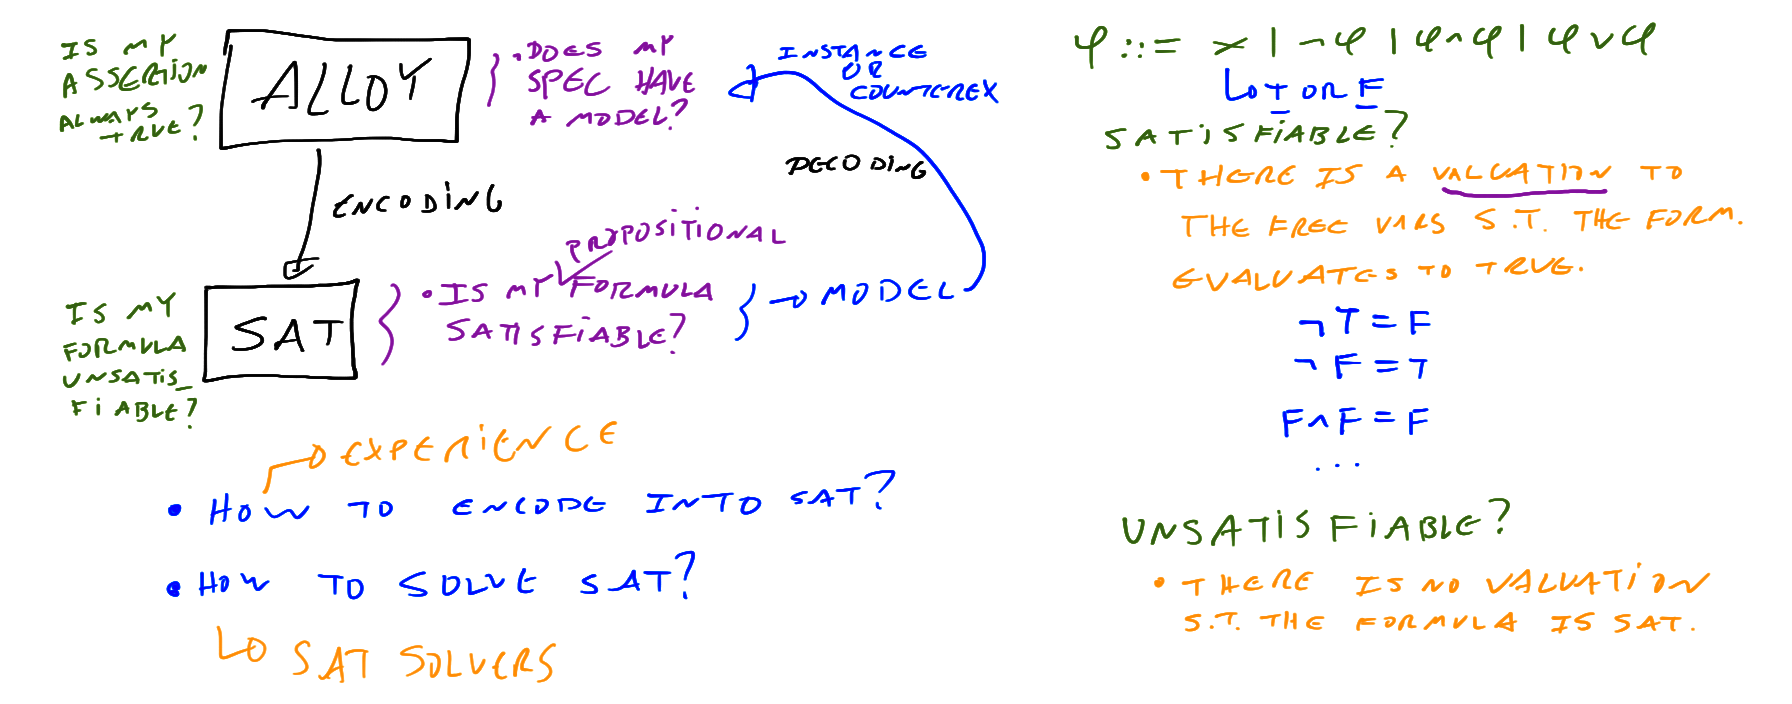 IS MY
ASSERTION
ALWAYS
TRUE?
ALLOY
·DOES MY
SPEC HAVE
A MODEL?
INSTANCE
OR
COUNTEREX
DECODING
ENCODING
PROPOSITIONAL
IS MY
FORMULA
UNSATIS_
FIABLE?
SAT
· IS MY FORMULA
SATISFIABLE?
→ MODEL
→ EXPERIENCE
• HOW TO ENCODE INTO SAT?
• HOW TO SOLVE SAT?
↳ SAT SOLVERS
φ ::= x | ¬φ | φ∧φ | φ∨φ
↳ T OR F
SATISFIABLE?
• THERE IS A VALUATION TO
THE FREE VARS S.T. THE FORM.
EVALUATES TO TRUE.
¬T = F
¬F = T
F∧F = F
...
UNSATISFIABLE?
• THERE IS NO VALUATION
S.T. THE FORMULA IS SAT.